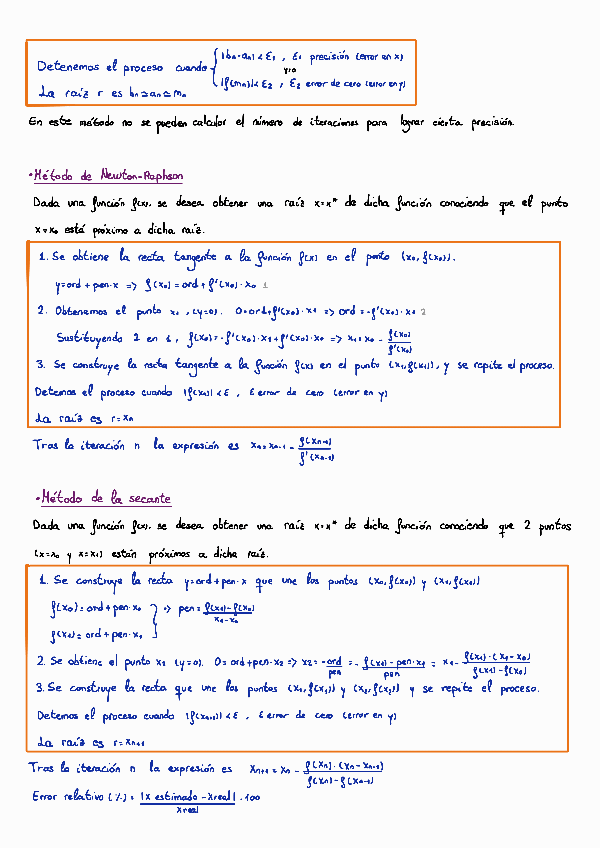 Detenemos el proceso cuando { |bn-an| < ε1 , ε1 precisión (error en x)
y/o
|f(mn)| < ε2 , ε2 error de cero (error en y)
La raíz r es bn ≃ an ≃ mn
En este método no se pueden calcular el número de iteraciones para lograr cierta precisión.
• Método de Newton-Raphson
Dada una función f(x), se desea obtener una raíz x=x* de dicha función conociendo que el punto
x=x0 está próximo a dicha raíz.
1. Se obtiene la recta tangente a la función f(x) en el punto (x0, f(x0)).
y=ord + pen·x => f(x0) = ord + f'(x0)·x0 1
2. Obtenemos el punto x1 , (y=0). 0=ord+f'(x0)·x1 => ord = -f'(x0)·x1 2
Sustituyendo 2 en 1, f(x0) = -f'(x0)·x1 + f'(x0)·x0 => x1 = x0 - f(x0)/f'(x0)
3. Se construye la recta tangente a la función f(x) en el punto (x1, f(x1)), y se repite el proceso.
Detemos el proceso cuando |f(xn)| < ε , ε error de cero (error en y)
La raíz es r=xn
Tras la iteración n la expresión es xn = xn-1 - f(xn-1)/f'(xn-1)
• Método de la secante
Dada una función f(x), se desea obtener una raíz x=x* de dicha función conociendo que 2 puntos
(x=x0 y x=x1) están próximos a dicha raíz.
1. Se construye la recta y=ord+pen·x que une los puntos (x0, f(x0)) y (x1, f(x1))
f(x0) = ord + pen·x0 } => pen = f(x1)-f(x0)/x1-x0
f(x1) = ord + pen·x1
2. Se obtiene el punto x2 (y=0). 0=ord+pen·x2 => x2 = -ord/pen = - f(x1) - pen·x1/pen = x1 - f(x1)·(x1-x0)/f(x1)-f(x0)
3. Se construye la recta que une los puntos (x1, f(x1)) y (x2, f(x2)) y se repite el proceso.
Detemos el proceso cuando |f(xn+1)| < ε , ε error de cero (error en y)
La raíz es r=xn+1
Tras la iteración n la expresión es xn+1 = xn - f(xn)·(xn-xn-1)/f(xn)-f(xn-1)
Error relativo (%) = |x estimado - xreal|/xreal · 100